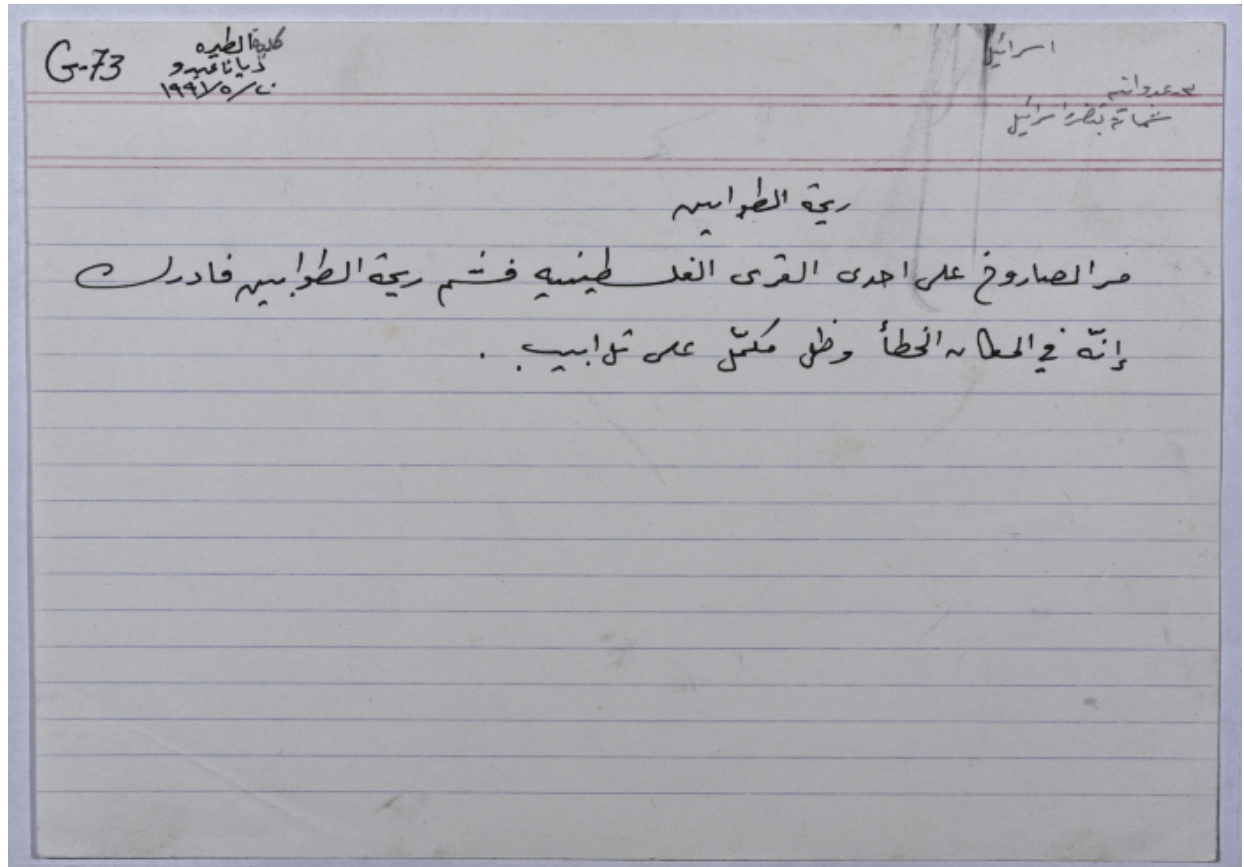 G-73
كلية الطيره
ديانا عبدو
١٩٩١/٥/٢٠
اسرائيل
عدوانيه
شماتة بتضرر اسرائيل
ريحة الطوابين
مر الصاروخ على احدى القرى الفلسطينيه فشم ريحة الطوابين فادرك
إنّه في المكان الخطأ وظل مكمّل على تل ابيب .